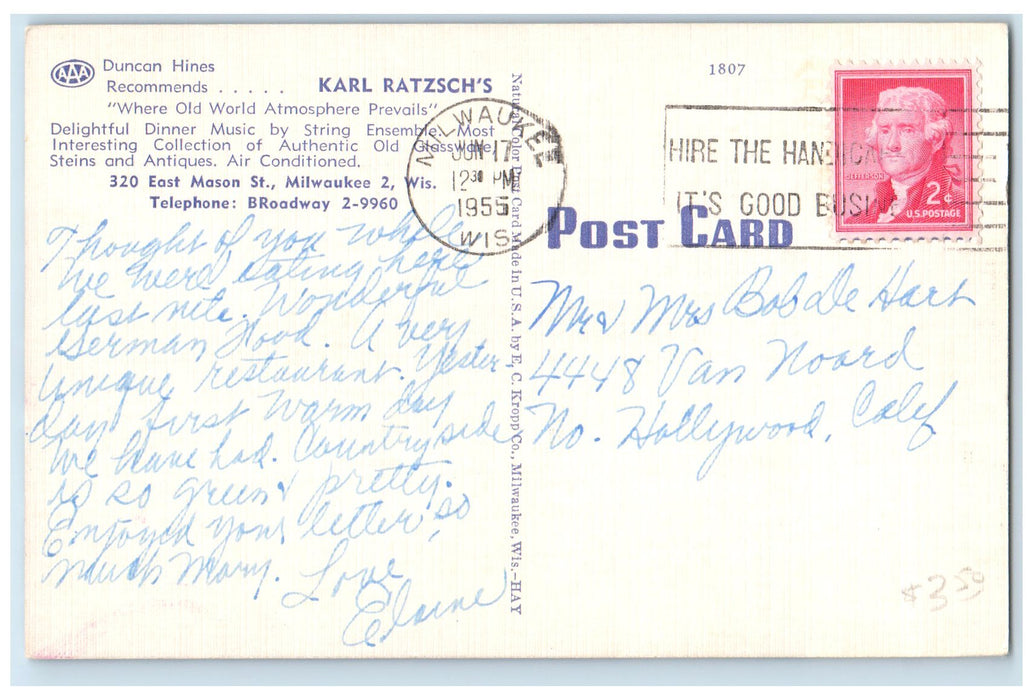 AAA Duncan Hines
Recommends . . . . . KARL RATZSCH'S
"Where Old World Atmosphere Prevails"
Delightful Dinner Music by String Ensemble. Most
Interesting Collection of Authentic Old Glassware,
Steins and Antiques. Air Conditioned.
320 East Mason St., Milwaukee 2, Wis.
Telephone: BRoadway 2-9960
Thought of you while
we were eating here
last nite. Wonderful
German Food. A very
unique restaurant. Yester-
day first warm day
we have had. Countryside
is so green & pretty.
Enjoyed your letter so
much Mary. Love
Elaine
Natural Color Post Card Made in U.S.A. by E. C. Kropp Co., Milwaukee, Wis.—HAY
MILWAUKEE
JUN 17
12 30 PM
1955
WIS.
1807
HIRE THE HANDICA
IT'S GOOD BUSINE
JEFFERSON
2¢
U.S. POSTAGE
POST CARD
Mr & Mrs Bob De Hart
4448 Van Noord
No. Hollywood, Calif
$3.50